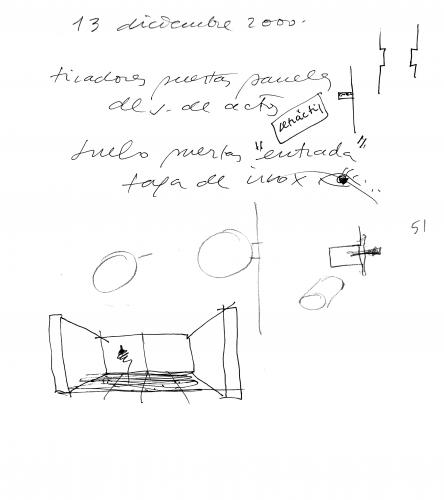 13 diciembre 2000.
tiradores puertas paneles
de s. de actos
retráctil
suelo puertas "entrada"
tapa de inox
51